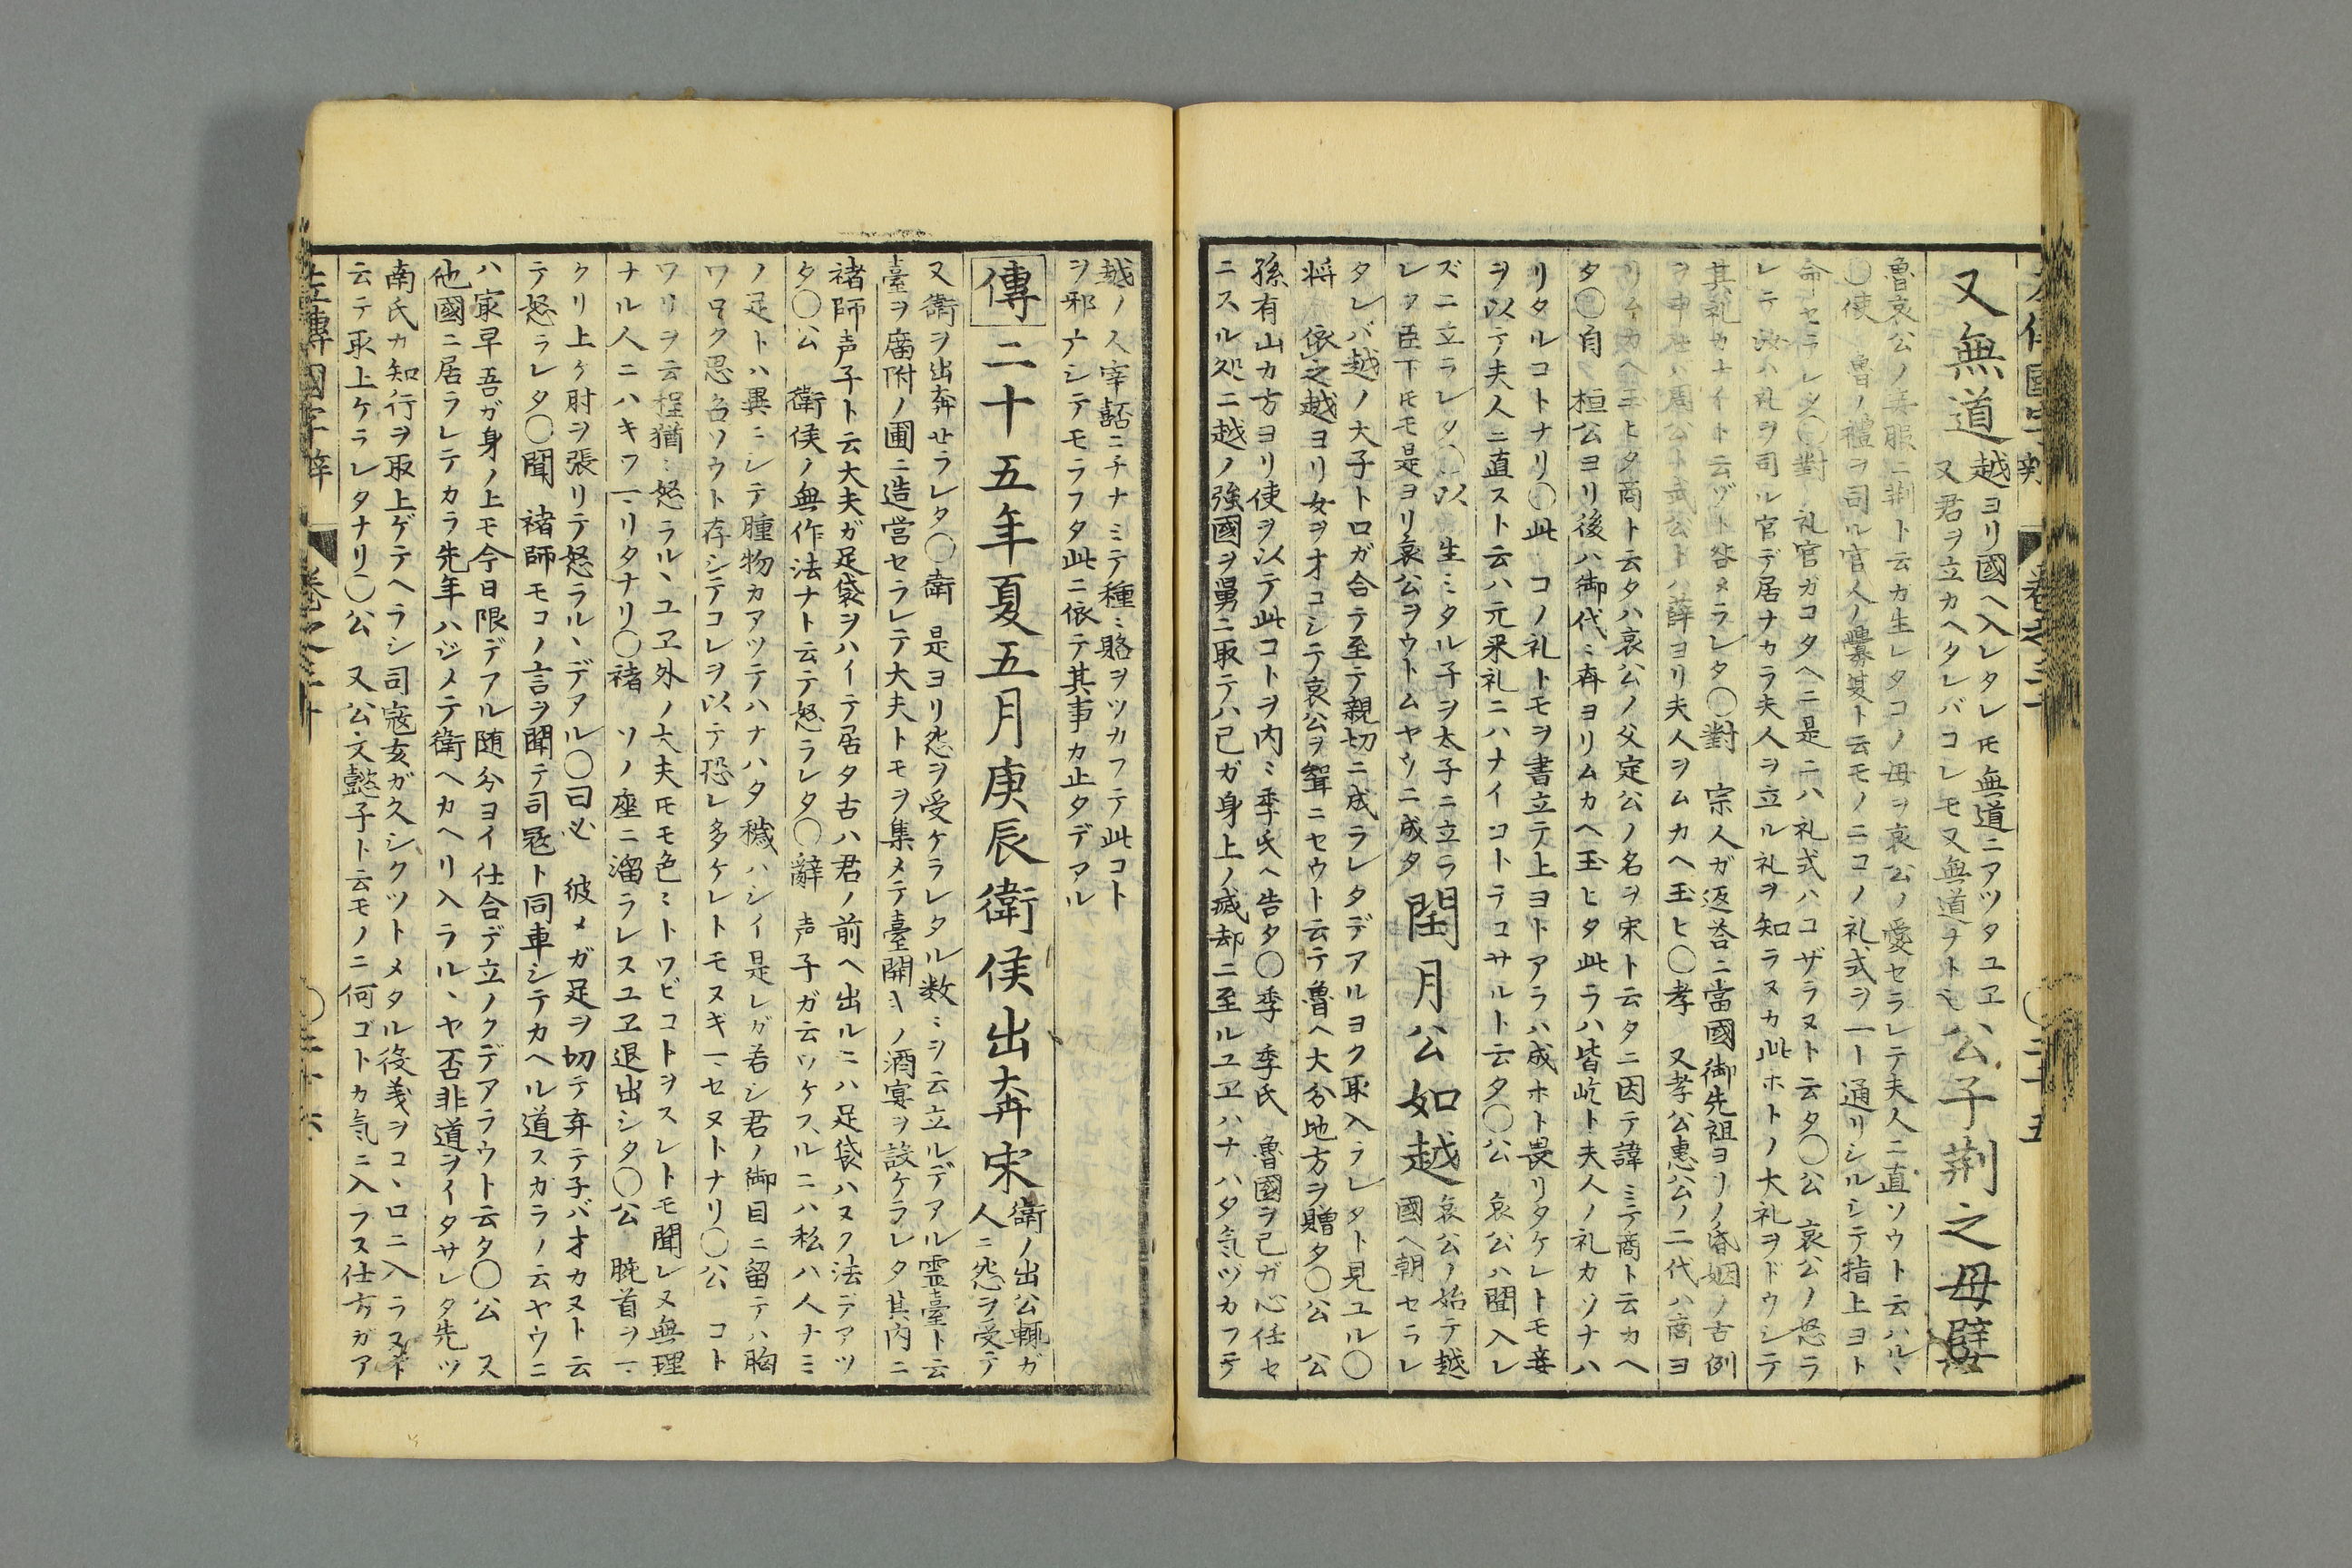 又無道
越ヨリ國ヘ入レタレ𪜈無道ニアツタユヱ
又君ヲ立カヘタレバコレモ又無道ナト乇
公子荆之母嬖
魯哀公ノ妾腹ニ荆ト云カ生レタコノ母ヲ哀公ノ愛セラレテ夫人ニ直ソウト云ハル丶
〇使 魯ノ禮ヲ司ル官人ノ釁夏ト云モノニコノ礼式ヲ一ト通リシルシテ指上ヨト
命セラレタ〇對 礼官ガコタヘニ是ニハ礼式ハコザラヌト云タ〇公 哀公ノ怒ラ
レテ汝ハ礼ヲ司ル官デ居ナカラ夫人ヲ立ル礼ヲ知ラヌカ此ホトノ大礼ヲドウシテ
其礼カナイト云ゾト咎メラレタ〇對 宗人ガ返荅ニ當國御先祖ヨリノ昏姻ノ古例
ヲ申セハ周公ト武公トハ薛ヨリ夫人ヲムカヘ玉ヒ〇孝 又孝公惠公ノ二代ハ商ヨ
リムカヘ玉ヒタ商ト云タハ哀公ノ父定公ノ名ヲ宋ト云タニ因テ諱ミテ商ト云カヘ
タ〇自 桓公ヨリ後ハ御代ミ斉ヨリムカヘ玉ヒタ此ラハ皆屹ト夫人ノ礼カソナハ
リタルコトナリ〇此 コノ礼トモヲ書立テ上ヨトアラハ成ホト畏リタケレトモ妾
ヲ以テ夫人ニ直スト云ハ元来礼ニハナイコトテコサルト云タ〇公 哀公ハ聞入レ
ズニ立ラレタ〇以 生ミタル子ヲ太子ニ立ラ
レタ臣下𪜈モ是ヨリ哀公ヲウトムヤウニ成タ
閏月公如越
哀公ノ始テ越
國ヘ朝セラレ
タレバ越ノ大子トロガ合テ至テ親切ニ成ラレタデアルヨク取入ラレタト見ユル〇
将 依之越ヨリ女ヲオコシテ哀公ヲ聟ニセウト云テ魯ヘ大分地方ヲ贈タ〇公 公
孫有山カ方ヨリ使ヲ以テ此コトヲ内ミ季氏ヘ告タ〇季 季氏 魯國ヲ己ガ心任セ
ニスル処ニ越ノ強國ヲ舅ニ取テハ己ガ身上ノ滅却ニ至ルユヱハナハタ気ヅカフテ
越ノ大宰嚭ニチナミテ種ミ賂ヲツカフテ此コト
ヲ邪广シテモラフタ此ニ依テ其事カ止タデアル
傳二十五年夏五月庚辰衛侯出奔宋
衛ノ出公輒ガ
人ニ怨ヲ受テ
又衛ヲ出奔セラレタ〇衛 是ヨリ怨ヲ受ケラレタル数ミヲ云立ルデアル霊臺ト云
臺ヲ廣附ノ圃ニ造営セラレテ大夫トモヲ集メテ臺開キノ酒宴ヲ設ケラレタ其内ニ
褚師声子ト云大夫ガ足袋ヲハイテ居タ古ハ君ノ前ヘ出ルニハ足袋ハヌク法デアツ
タ〇公 衛侯ノ無作法ナト云テ怒ラレタ〇辭 声子ガ云ワケスルニハ私ハ人ナミ
ノ足トハ異ニシテ腫物カアツテハナハタ穢ハシイ是レガ若シ君ノ御目ニ留テハ胸
ワロク思召ソウト存シテコレヲ以テ恐レ多ケレトモヌギ一セヌトナリ〇公 コト
ワリヲ云程猶ミ怒ラル丶ユヱ外ノ大夫𪜈モ色ミトワビコトヲスレトモ聞レヌ無理
ナル人ニハキフ一リタナリ〇褚 ソノ座ニ溜ラレスユヱ退出シタ〇公 腕首ヲ一
クリ上ケ肘ヲ張リテ怒ラル丶デアル〇曰必 彼メガ足ヲ切テ弃テ子バオカヌト云
テ怒ラレタ〇聞 褚師モコノ言ヲ聞テ司冦ト同車シテカヘル道スカラノ云ヤウニ
ハ冣早吾ガ身ノ上モ今日限デアル随分ヨイ仕合デ立ノクデアラウト云タ〇公 ス
他國ニ居ラレテカラ先年ハジメテ衛ヘカヘリ入ラル丶ヤ否非道ヲイタサレタ先ツ
南氏カ知行ヲ取上ゲテヘラシ司寇亥ガ久シクツトメタル役義ヲコ丶ロニ入ラヌト
云テ取上ケラレタナリ〇公 又公文懿子ト云モノニ何ゴトカ気ニ入ラヌ仕方ガア
左傳國字辯 巻之三十 〇二十六